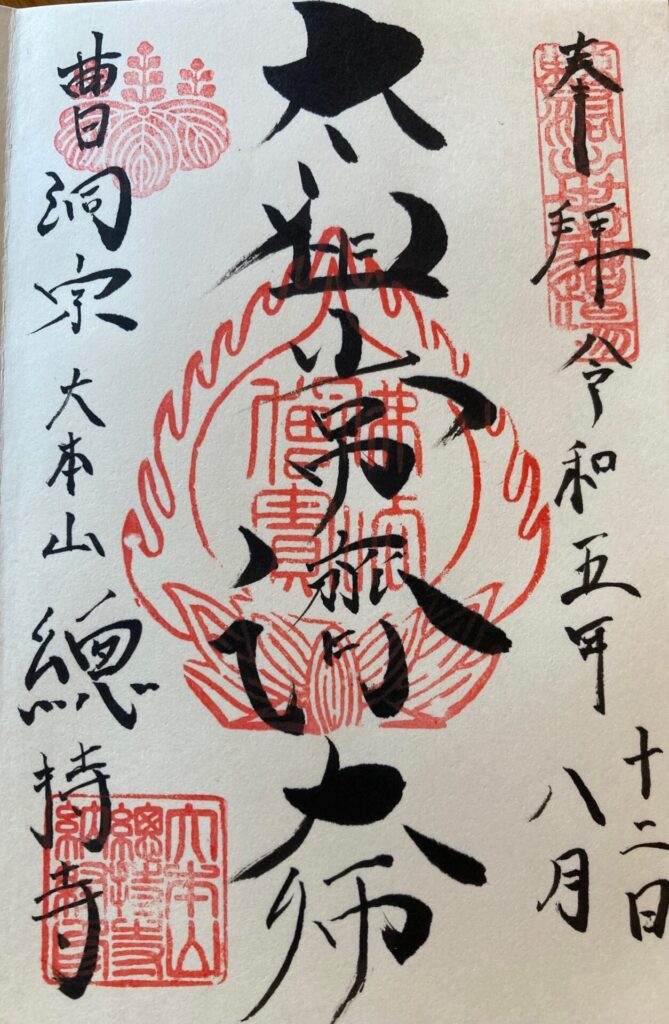 奉拝
令和五年
八月
十二日
太祖常濟大師
佛法
僧寶
曹洞宗大本山總持寺
大本山
總持寺